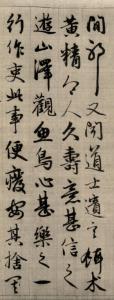 間耶又聞道士遺言餌术
黃精令人久壽意甚信之
遊山澤觀魚鳥心甚樂之一
行作吏此事便廢安其捨